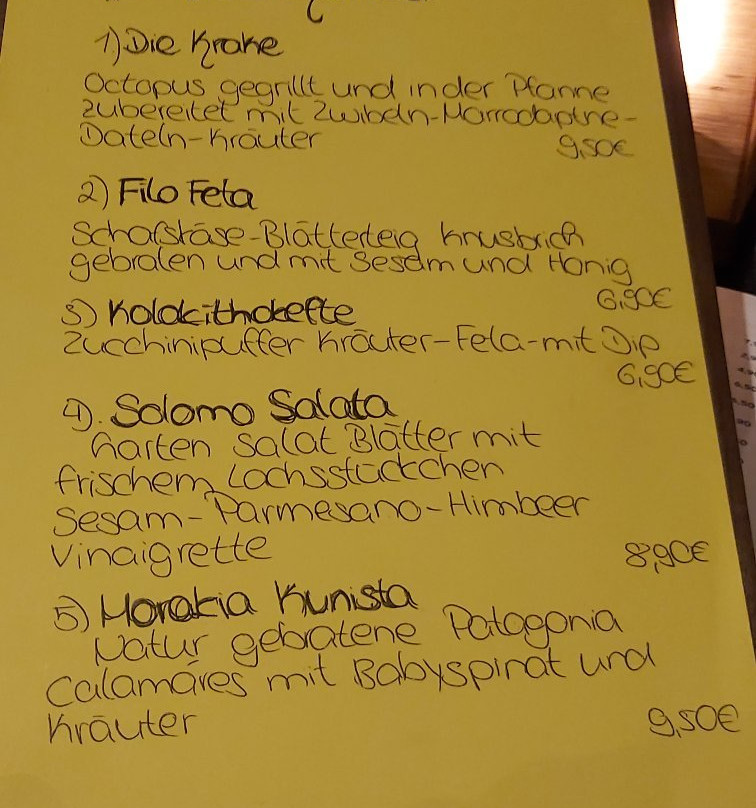 1) Die Krake
Octopus gegrillt und in der Pfanne
zubereitet mit Zwibeln-Marrodaphne-
Dateln-Kräuter
9,50€
2) Filo Feta
Schafskäse-Blätterteig knusbrich
gebraten und mit Sesam und Honig
6,90€
3) Kolokithokefte
Zucchinipuffer Kräuter-Feta-mit Dip
6,90€
4). Solomo Salata
Garten Salat Blätter mit
frischem Lachsstückchen
Sesam-Parmesano-Himbeer
Vinaigrette
8,90€
5) Horakia Kunista
Natur gebratene Patagonia
Calamáres mit Babyspinat und
Kräuter
9,50€